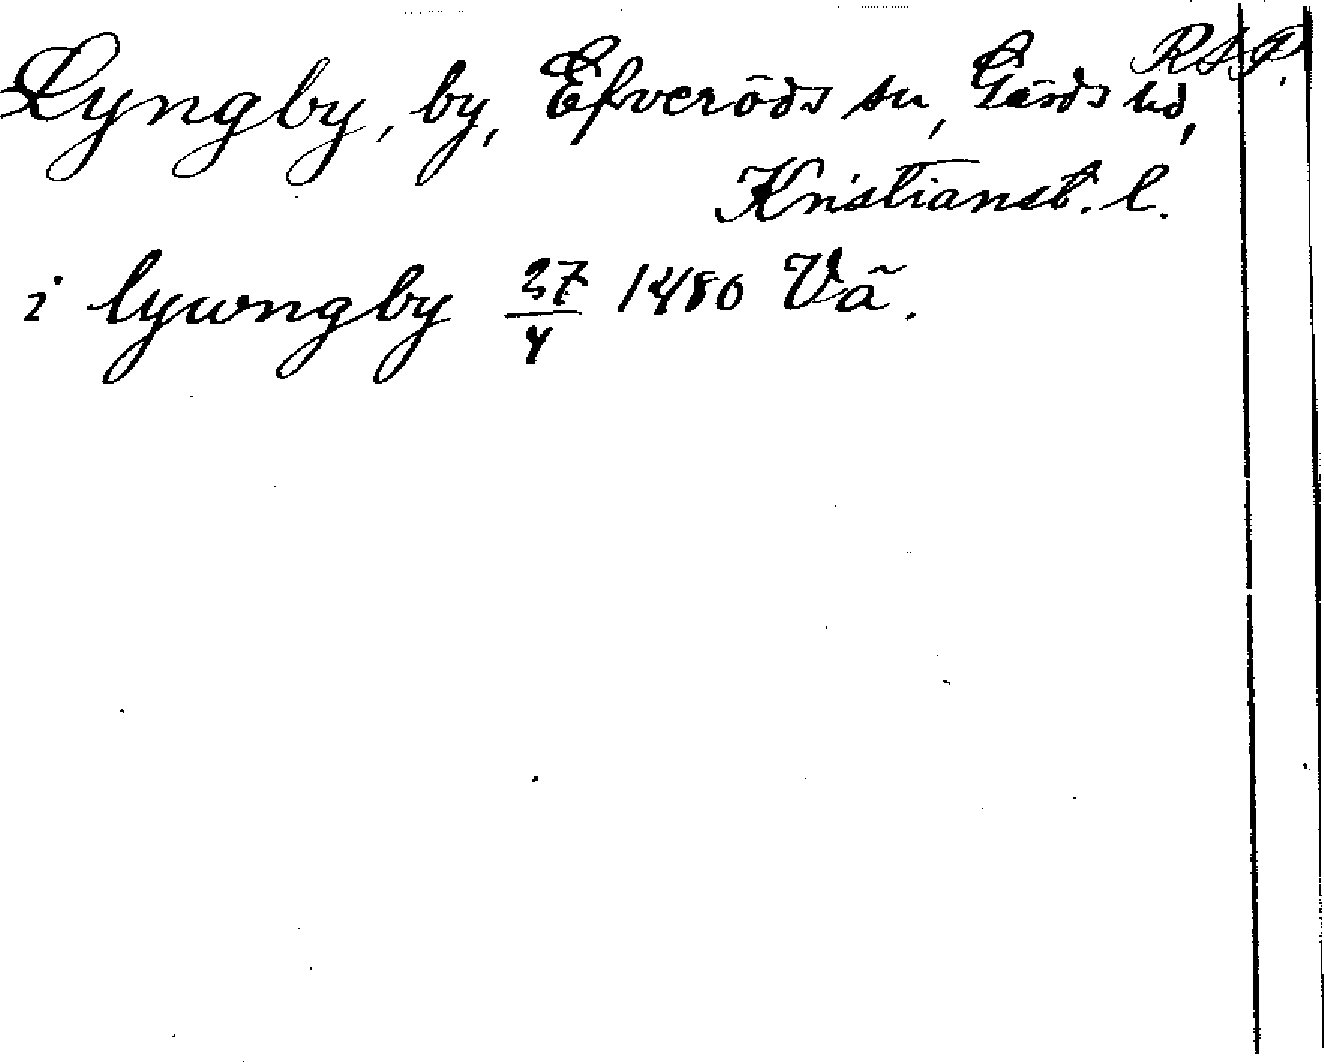 R.A.P.
Lyngby, by, Efveröds sn, Gärds hd,
Kristianst. l.
i lywngby 27/4 1480 Vä.